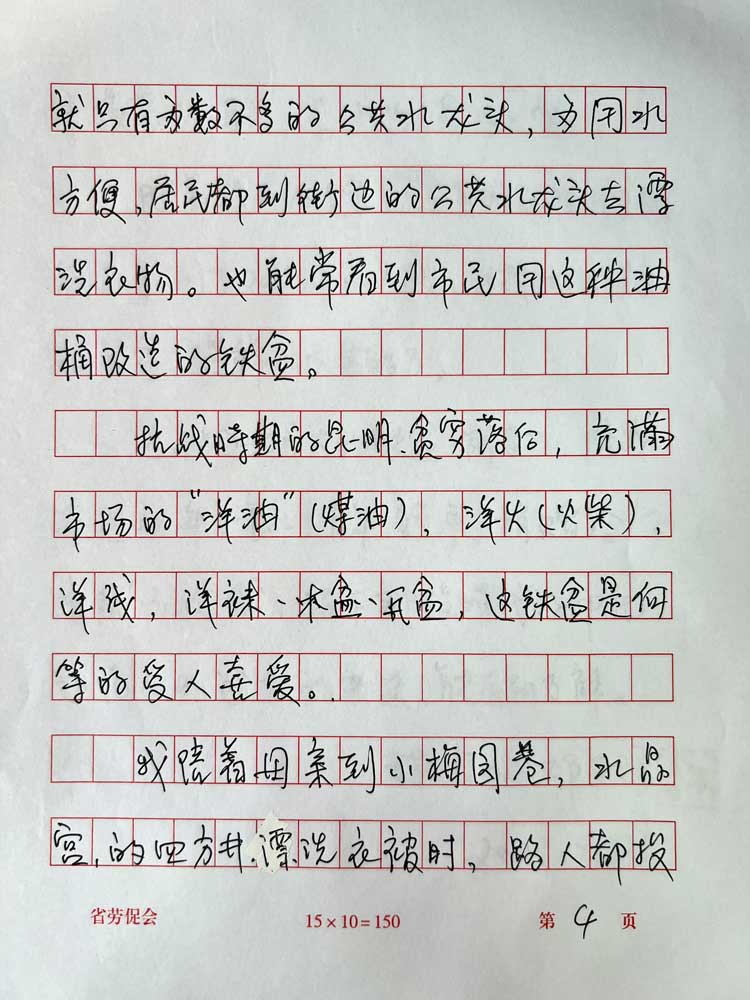 就只有为数不多的公共水龙头，为用水
方便，居民都到街边的公共水龙头去漂
洗衣物。也能常看到市民用这种油
桶改造的铁盆。
抗战时期的昆明、贫穷落后，充满
市场的“洋油”（煤油），洋火（火柴），
洋线，洋袜、木盆、瓦盆，这铁盆是何
等的受人喜爱。
我陪着母亲到小梅园巷，水晶
宫，的四方井、漂洗衣被时，路人都投
省劳促会 15×10=150 第 4 页